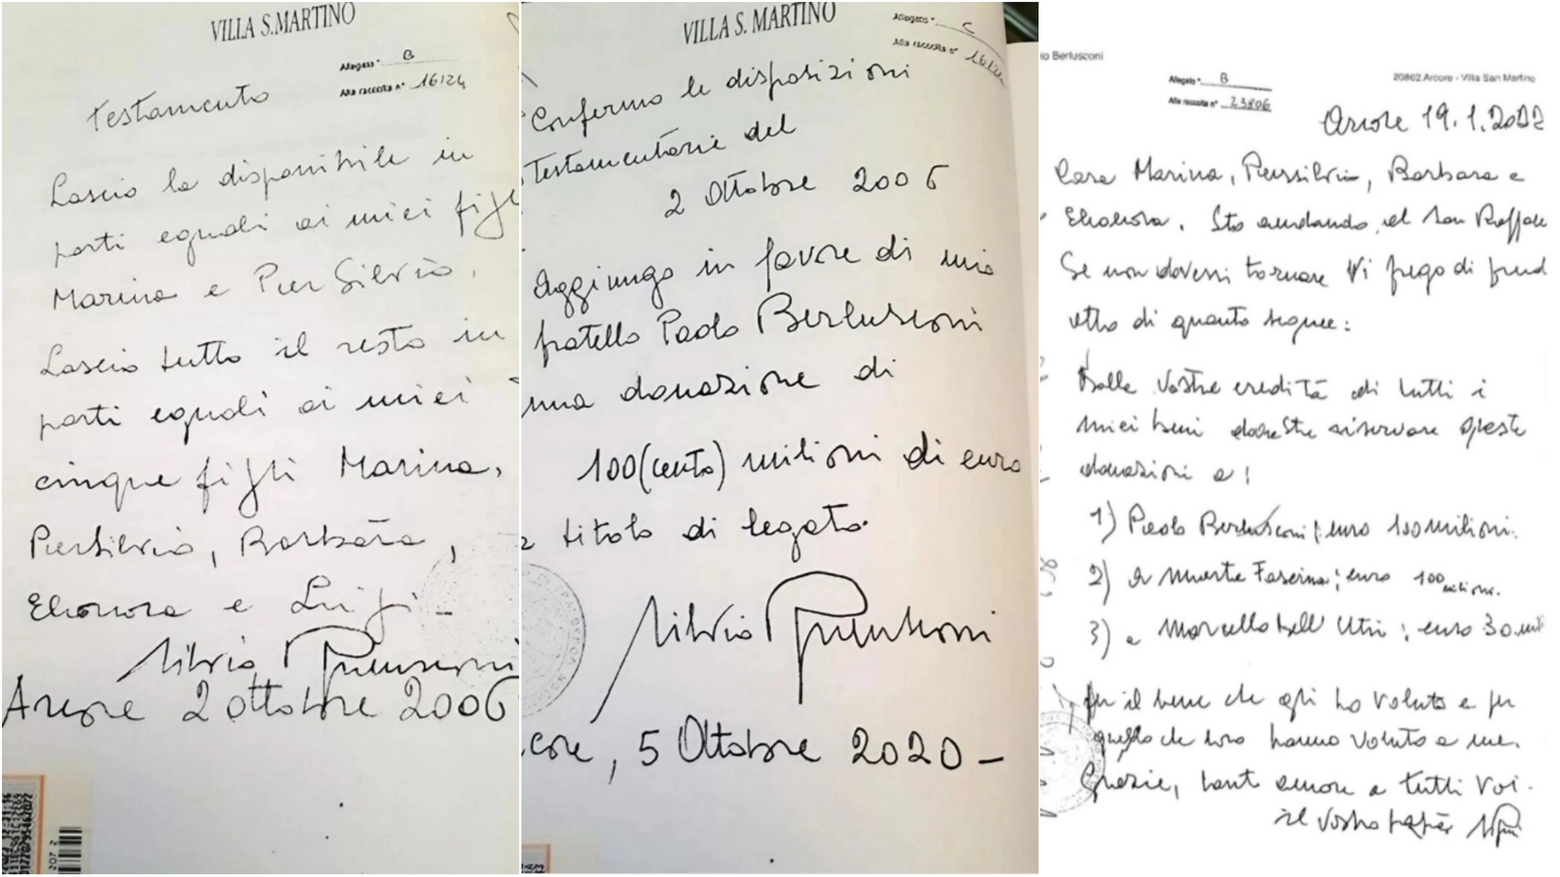 VILLA S.MARTINO
Allegato " B
Alla raccolta n° 16124
Testamento
Lascio la disponibile in
parti eguali ai miei figli
Marina e Pier Silvio.
Lascio tutto il resto in
parti eguali ai miei
cinque figli Marina,
Piersilvio, Barbara,
Eleonora e Luigi -
Silvio Berlusconi
Arcore 2 ottobre 2006
VILLA S. MARTINO
Allegato " C
Alla raccolta n°
Confermo le disposizioni
Testamentarie del
2 Ottobre 2006
Aggiungo in favore di mio
fratello Paolo Berlusconi
una donazione di
100 (cento) milioni di euro
a titolo di legato.
Silvio Berlusconi
core, 5 Ottobre 2020 -
io Berlusconi
Allegato " B
20862 Arcore - Villa San Martino
Alla raccolta n° 23806
Arcore 19.1.2022
Cara Marina, Piersilvio, Barbara e
Eleonora. Sto andando al San Raffaele
Se non dovessi tornare Vi prego di prend
atto di quanto segue:
Dalle Vostre eredità di tutti i
miei beni dovreste riservare queste
donazioni a:
1) Paolo Berlusconi: euro 100 milioni.
2) a Marta Fascina: euro 100 milioni.
3) a Marcello Dell'Utri: euro 30 mili
Per il bene che gli ho voluto e per
quello che loro hanno voluto a me.
Grazie, tanto amore a tutti Voi.
il vostro papà